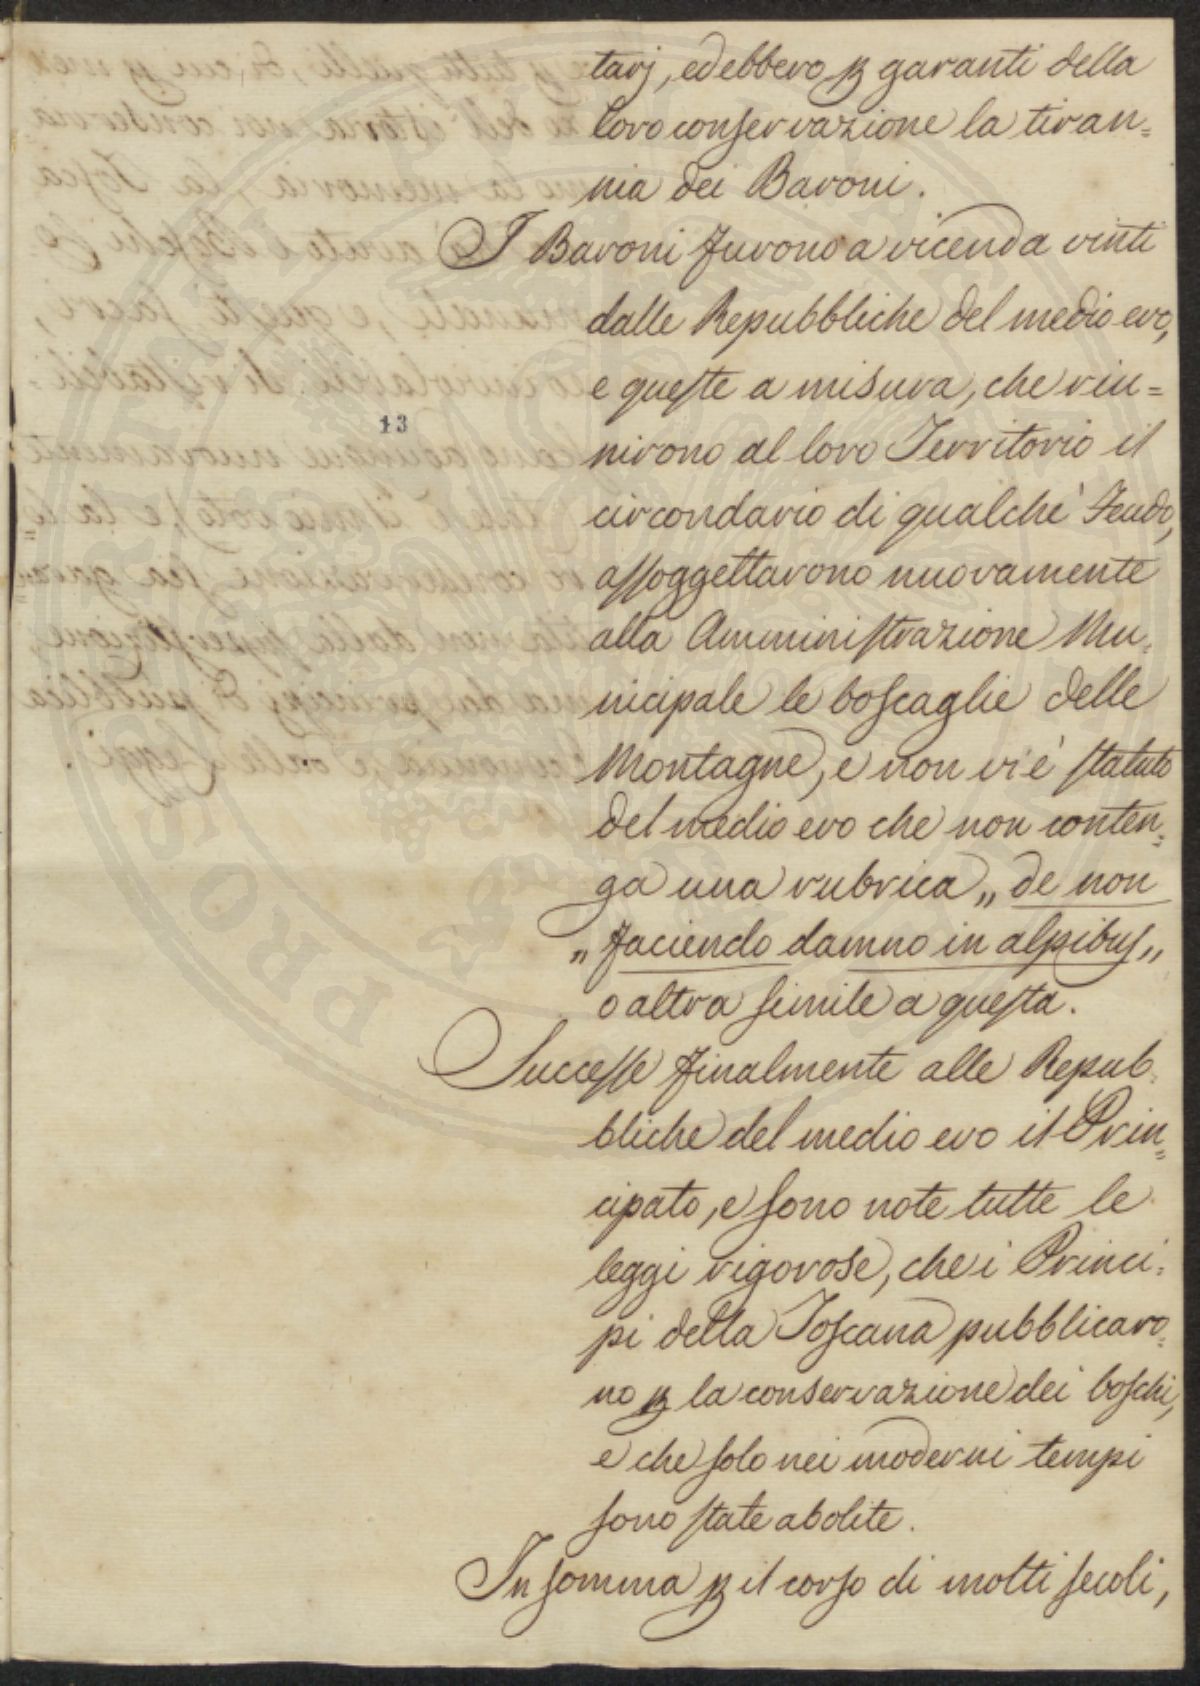 tarj, ed ebbero ꝑ garanti della
loro conservazione la tiran=
nia dei Baroni.
I Baroni furono a vicenda vinti
dalle Repubbliche del medio evo,
e queste a misura, che riu=
nirono al loro Territorio il
13
circondario di qualche Feudo,
assoggettarono nuovamente
alla Amministrazione Mu=
nicipale le boscaglie delle
Montagne, e non vi è statuto
del medio evo che non conten=
ga una rubrica „ de non
„ faciendo damno in alpibus „
o altra simile a questa.
Successe finalmente alle Repub=
bliche del medio evo il Prin=
cipato, e sono note tutte le
leggi rigorose, che i Princi=
pi della Toscana pubblicaro=
no ꝑ la conservazione dei boschi,
e che solo nei moderni tempi
sono state abolite.
In somma ꝑ il corso di molti secoli,